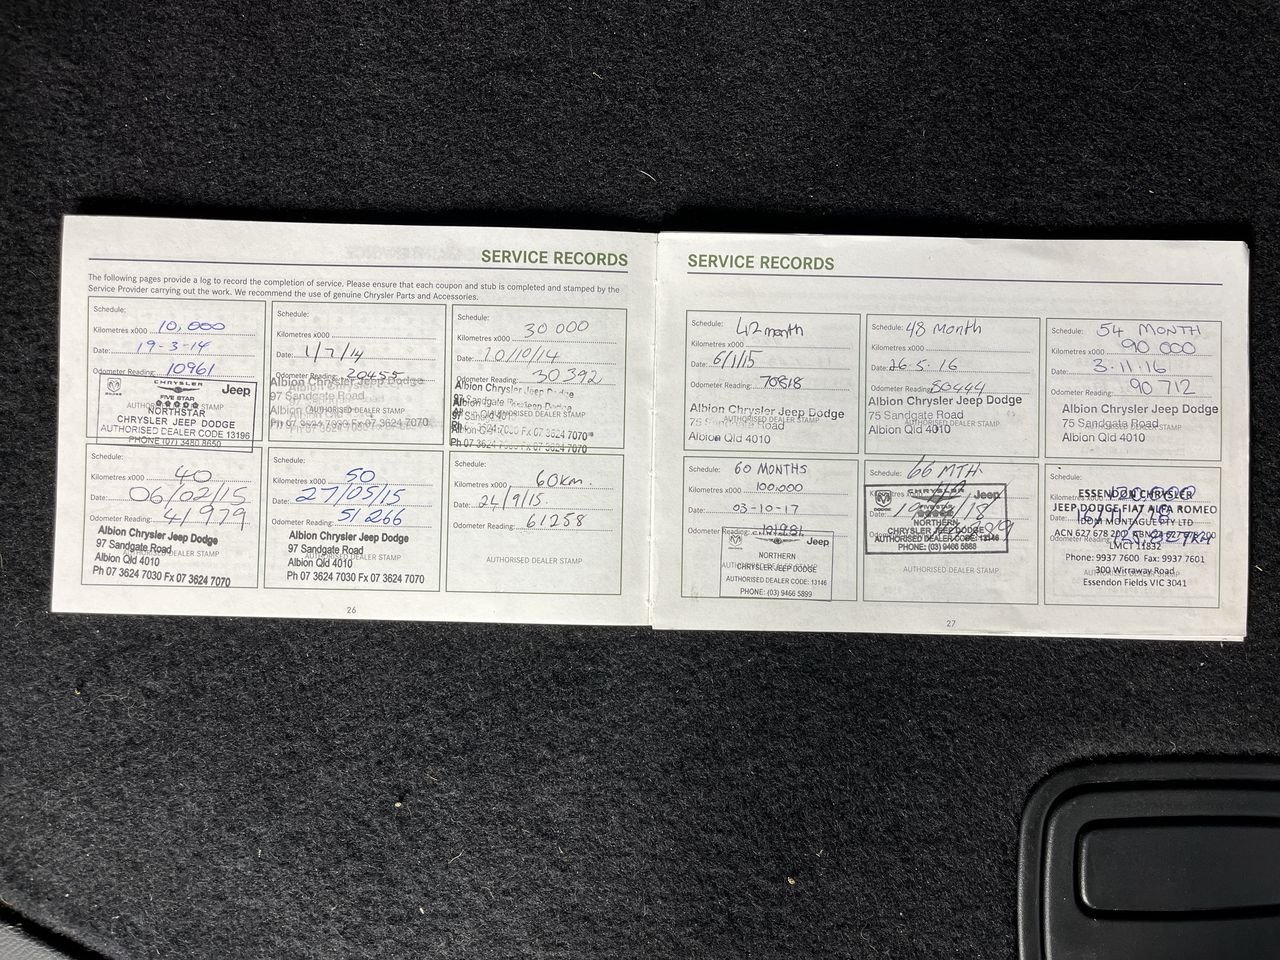 SERVICE RECORDS
The following pages provide a log to record the completion of service. Please ensure that each coupon and stub is completed and stamped by the
Service Provider carrying out the work. We recommend the use of genuine Chrysler Parts and Accessories.
Schedule:
Kilometres x000 10,000
Date: 19-3-14
Odometer Reading: 10961
CHRYSLER Jeep
DODGE FIVE STAR
NORTHSTAR
CHRYSLER JEEP DODGE
AUTHORISED DEALER CODE 13196
PHONE (07) 3480 8650
Schedule:
Kilometres x000
Date: 1/7/14
Odometer Reading: 20455
Albion Chrysler Jeep Dodge
97 Sandgate Road
AUTHORISED DEALER STAMP
Ph 07 3624 7030 Fx 07 3624 7070
Schedule: 30 000
Kilometres x000
Date: 10/10/14
Odometer Reading: 30392
Albion Chrysler Jeep Dodge
AUTHORISED DEALER STAMP
Ph 07 3624 7030 Fx 07 3624 7070
Schedule:
Kilometres x000 40
Date: 06/02/15
Odometer Reading: 41979
Albion Chrysler Jeep Dodge
97 Sandgate Road
AUTHORISED DEALER STAMP
Albion Qld 4010
Ph 07 3624 7030 Fx 07 3624 7070
Schedule:
Kilometres x000 50
Date: 27/05/15
Odometer Reading: 51266
Albion Chrysler Jeep Dodge
97 Sandgate Road
AUTHORISED DEALER STAMP
Albion Qld 4010
Ph 07 3624 7030 Fx 07 3624 7070
Schedule:
Kilometres x000 60km.
Date: 24/9/15
Odometer Reading: 61258
AUTHORISED DEALER STAMP
26
SERVICE RECORDS
Schedule: 42 month
Kilometres x000
Date: 6/1/15
Odometer Reading: 70818
Albion Chrysler Jeep Dodge
AUTHORISED DEALER STAMP
75 Sandgate Road
Albion Qld 4010
Schedule: 48 Month
Kilometres x000
Date: 26-5-16
Odometer Reading: 80444
Albion Chrysler Jeep Dodge
75 Sandgate Road
AUTHORISED DEALER STAMP
Albion Qld 4010
Schedule: 54 MONTH
Kilometres x000 90 000
Date: 3-11-16
Odometer Reading: 90 712
Albion Chrysler Jeep Dodge
75 Sandgate Road
AUTHORISED DEALER STAMP
Albion Qld 4010
Schedule: 60 MONTHS
Kilometres x000 100,000
Date: 03-10-17
Odometer Reading: 101281
Jeep
NORTHERN
CHRYSLER JEEP DODGE
AUTHORISED DEALER CODE: 13146
PHONE: (03) 9466 5899
Schedule: 66 MTH
Kilometres x000
Date:
CHRYSLER Jeep
DODGE FIVE STAR
NORTHERN
CHRYSLER JEEP DODGE
AUTHORISED DEALER CODE: 13146
PHONE: (03) 9466 5888
AUTHORISED DEALER STAMP
Schedule:
Kilometres x000 120,000
Date:
Odometer Reading:
ESSENDON CHRYSLER
JEEP DODGE FIAT ALFA ROMEO
LMCT 11832
Phone: 9937 7600 Fax: 9937 7601
300 Wirraway Road
Essendon Fields VIC 3041
27